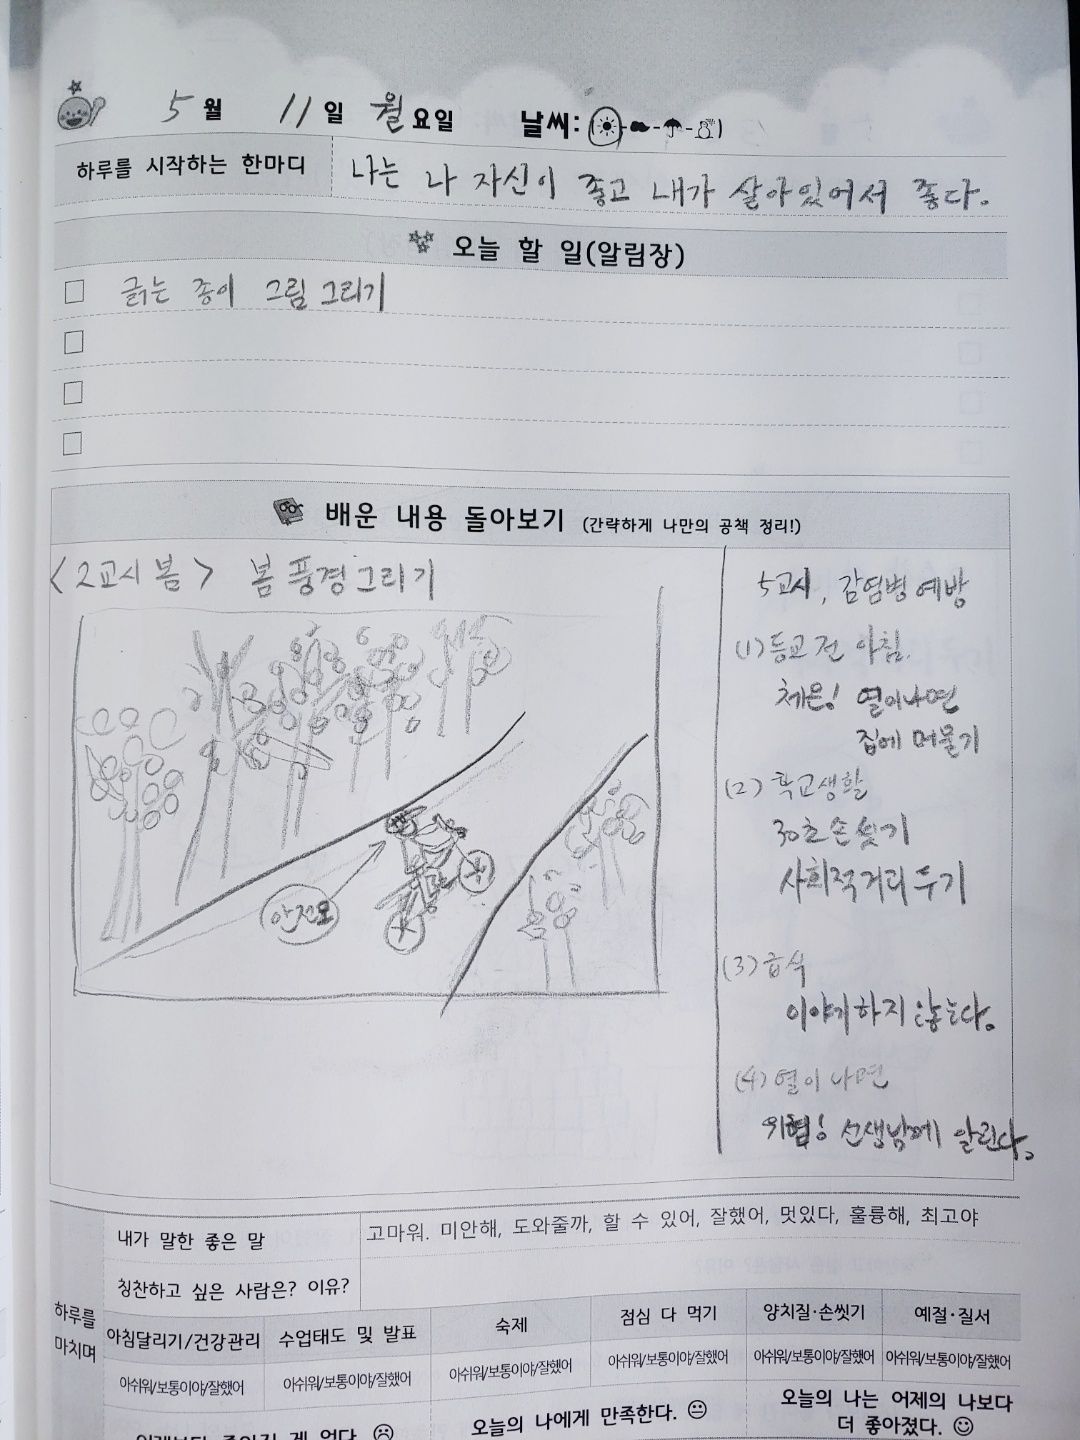 5월 11일 월요일 날씨:
하루를 시작하는 한마디 나는 나 자신이 좋고 내가 살아있어서 좋다.
오늘 할 일(알림장)
긁는 종이 그림 그리기
배운 내용 돌아보기 (간략하게 나만의 공책 정리!)
<2교시 봄> 봄 풍경그리기
안전모
5교시, 감염병 예방
(1) 등교 전 아침.
체온! 열이나면
집에 머물기
(2) 학교생활
30초 손 씻기
사회적거리 두기
(3) 급식
이야기하지 않는다.
(4) 열이 나면
위험! 선생님께 알린다.
하루를 마치며
내가 말한 좋은 말 고마워. 미안해, 도와줄까, 할 수 있어, 잘했어, 멋있다, 훌륭해, 최고야
칭찬하고 싶은 사람은? 이유?
아침달리기/건강관리 수업태도 및 발표 숙제 점심 다 먹기 양치질·손씻기 예절·질서
아쉬워/보통이야/잘했어 아쉬워/보통이야/잘했어 아쉬워/보통이야/잘했어 아쉬워/보통이야/잘했어 아쉬워/보통이야/잘했어 아쉬워/보통이야/잘했어
오늘의 나에게 만족한다.
오늘의 나는 어제의 나보다
더 좋아졌다.